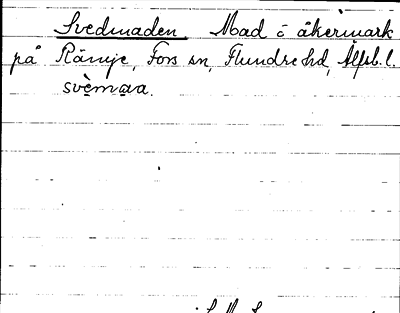 Svedmaden Mad o åkermark
på Rämje, Fors sn, Flundre hd, Älfsb. l.
svèmaa.